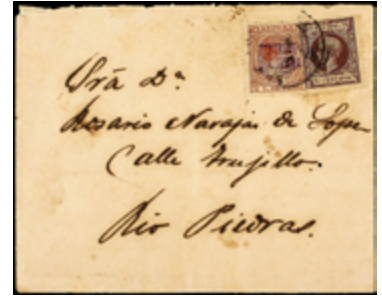 Srã Dª
Rosario Navajas de Lope
Calle Trujillo.
Rio Piedras.